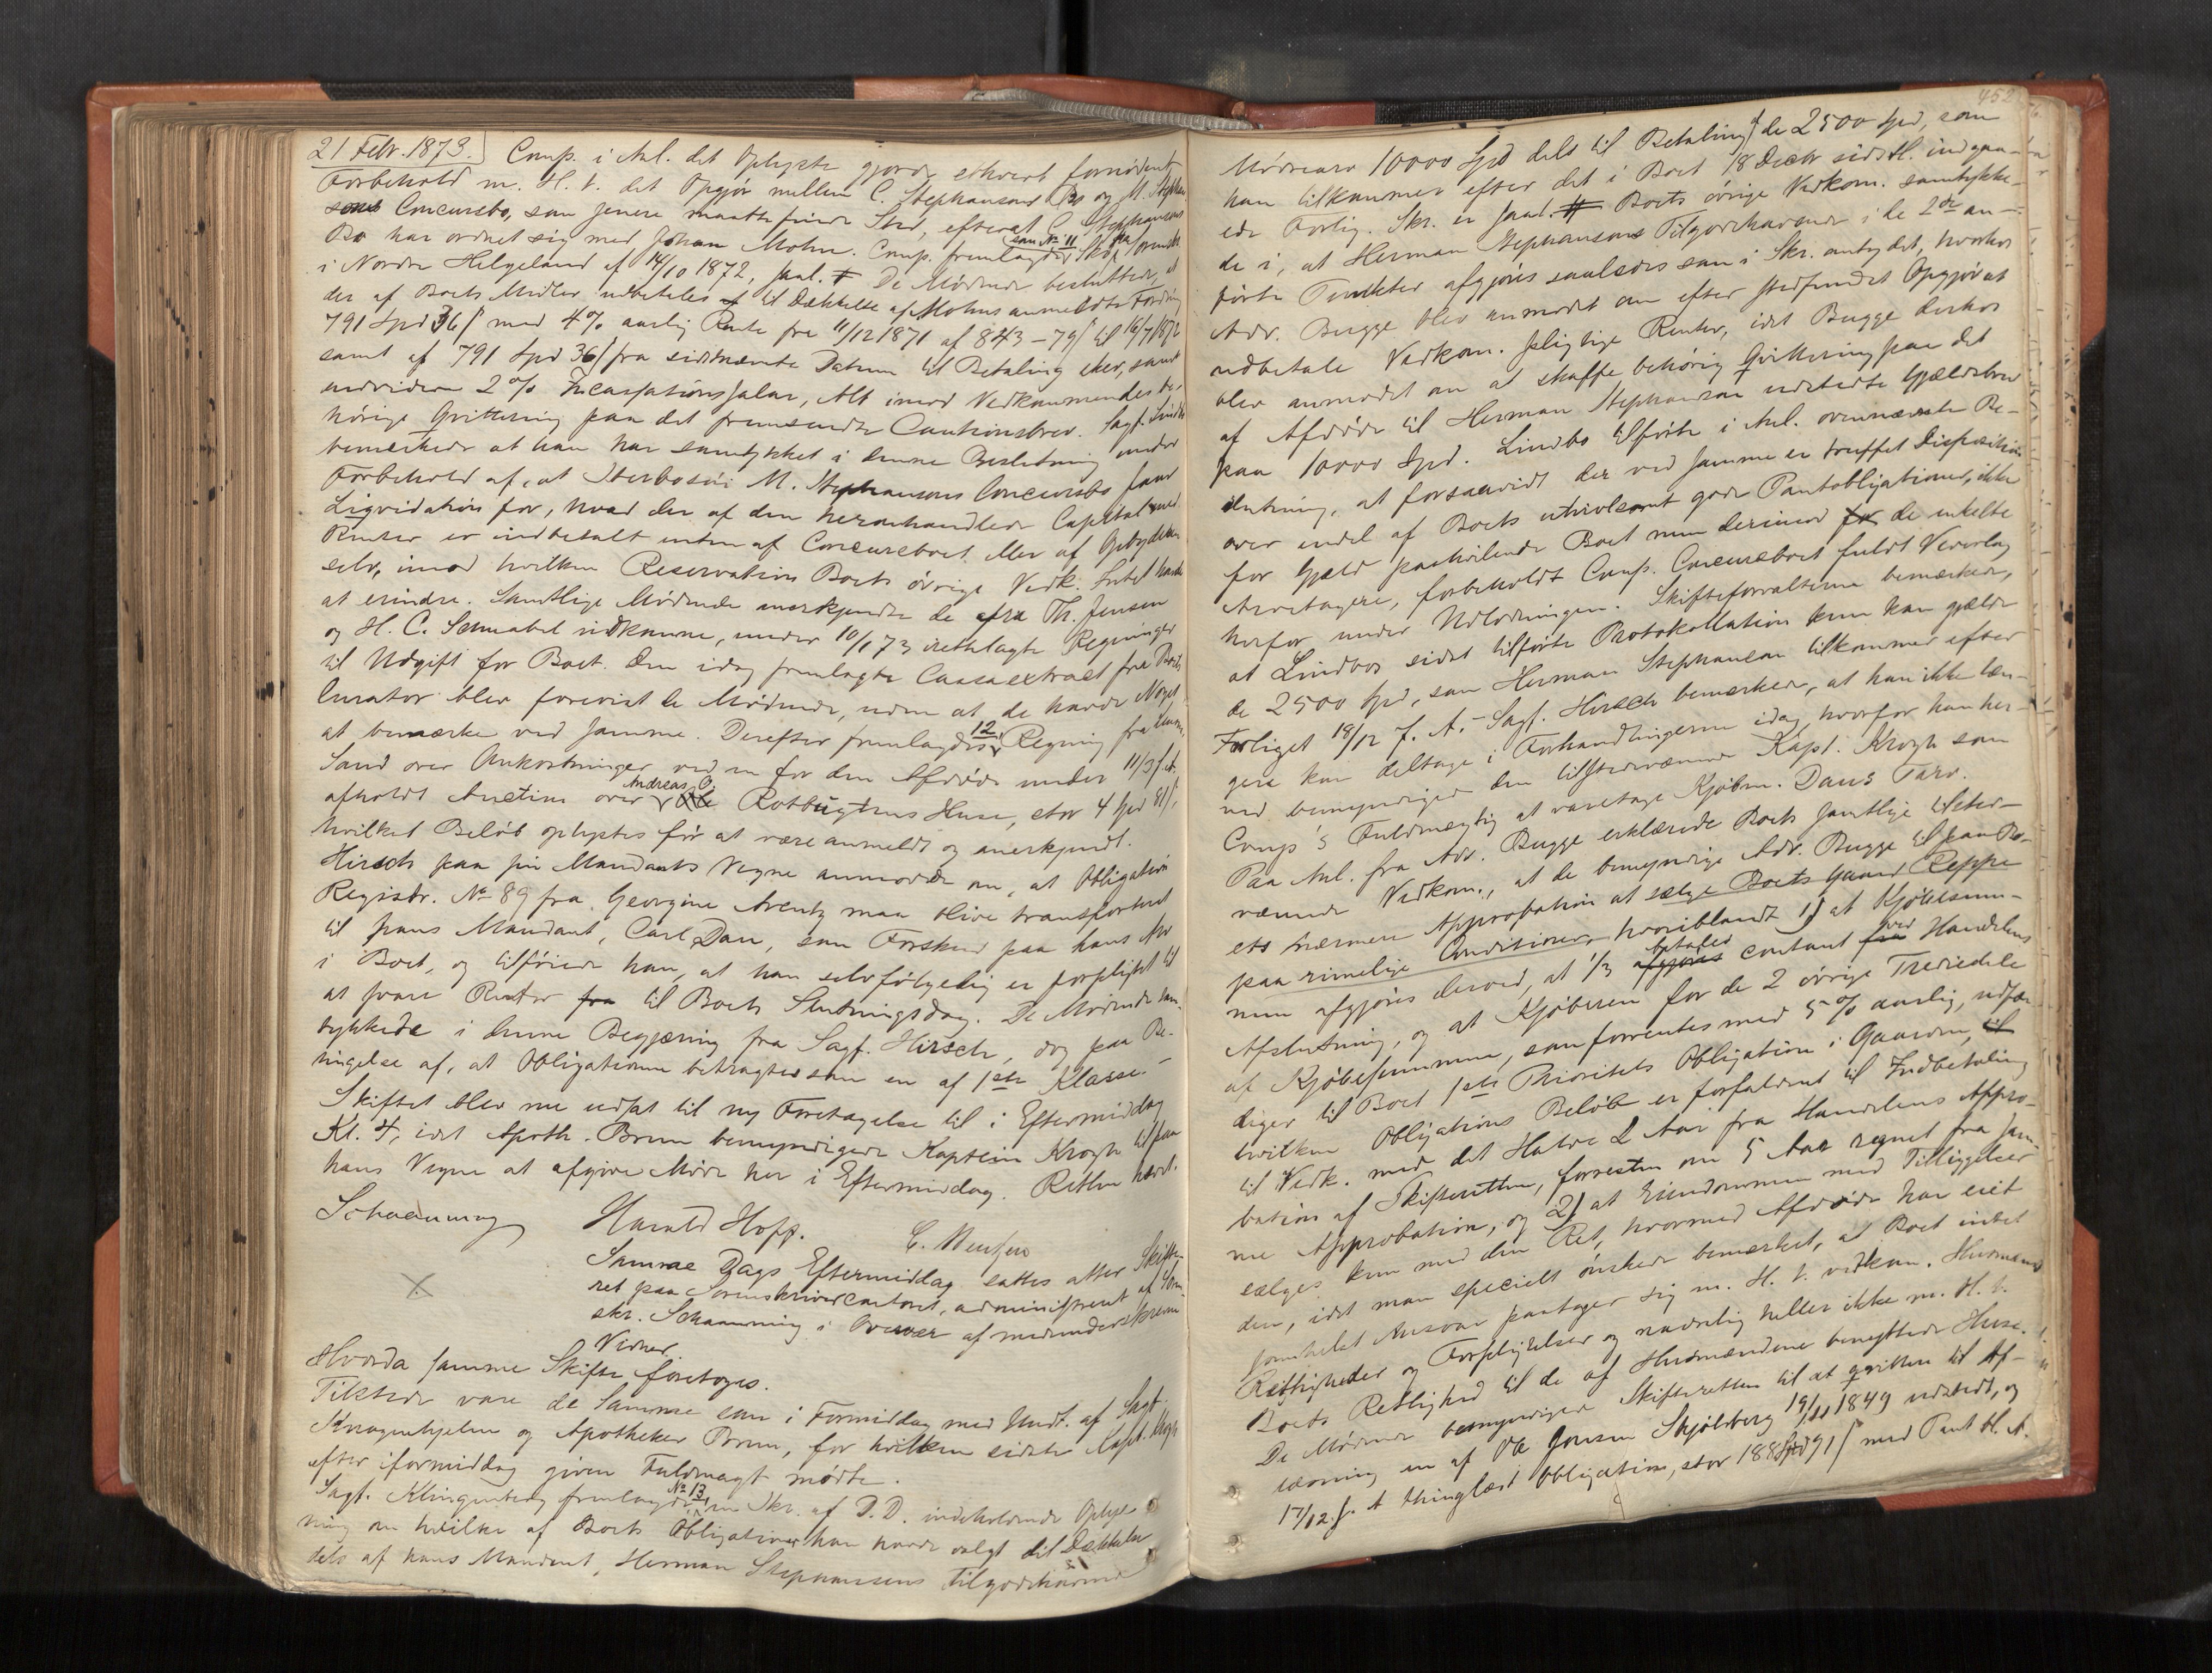 21 Febr. 1873. Comp. i Anl. det Oplyste gjorde ethvert fornødent
Forbehold m. H. t. det Opgjør mellem C. Stephansons Bo og M. Stephan-
sons Concursbo, som senere maatte finde Sted, efterat C. Stephansons
Bo har ordnet sig med Johan Mohn. Comp. fremlagde som No 11 Skr. fra
i Nordre Helgeland af 14/10 1872, saal. # De Mødende besluttede, at
der af Boets Midler udbetales til Dækkelse af Mohns anmeldte Fordring
791 Spd 36 s med 4% aarlig Rente fra 11/12 1871 af 843 – 79 s til 16/7 1872
samt af 791 Spd 36 s fra sidstnævnte Datum til Betaling sker, samt
endvidere 2% Incassationssalar, Alt imod Vedkommendes be-
hørige Qvittering paa det fremsendte Cautionsbrev. Sagf. Lindbo
bemærkede at han har samtykket i denne Beslutning under
Forbehold af, at Sterbosøn M. Stephansons Concursbo faar
Liqvidation for, hvad der af den heromhandlede Capital med
Renter er indbetalt enten af Concursboet eller af Opbyderen
selv, imod hvilken Reservation Boets øvrige Vedk. Intet havde
at erindre. Samtlige Mødende anerkjendte de fra Th. Jensen
og H. C. Schnabel indkomne, under 10/1 73 irettelagte Regninger
til Udgift for Boet. Den idag fremlagte Cassaextract fra Boets
Curator blev forevist de Mødende, uden at de havde Noget
at bemærke ved samme. Derefter fremlagdes 12, Regning fra
Sand over Omkostninger ved en for den Afdøde under 11/3 f. A.
afholdt Auction over Andreas O. Rotbugtens Huse, stor 4 Spd 81 s,
hvilket Beløb oplystes før at være anmeldt og anerkjendt.
Hirsch paa sin Mandants Vegne anmodede om, at Obligation
Registr. No 89 fra Georgine Arentz maa blive transporteret
til hans Mandant, Carl Dau, som Forskud paa hans Arv
i Boet, og tilføiede han, at han selvfølgelig er forpligtet til
at svare Renter fra til Boets Slutningsdag. De Mødende sam-
tykkede i denne Begjæring fra Sagf. Hirsch, dog paa Be-
tingelse af, at Obligationen betragtes som en af 1ste Klasse. –
Skiftet blev nu udsat til ny Foretagelse til i Eftermiddag
Kl. 4, idet Apoth. Brun bemyndigede Kaptein Krogh til paa
hans Vegne at afgive Møde her i Eftermiddag. Retten hævet.
Schaanning Harald Hopp. C.
Samme Dags Eftermiddag sattes atter Skifte-
ret paa Sorenskrivercontoret, administreret af Soren-
skr. Schaanning i Overvær af medunderskrevne
Vidner.
Hvorda samme Skifte foretoges.
Tilstede vare de Samme som i Formiddag med Undt. af Sagf.
Knagenhjelm og Apotheker Brun, for hvilken sidste Kapt. Krogh
efter iformiddag given Fuldmagt mødte.
Sagf. Klingenberg fremlagde No 13, en Skr. af D. D. indeholdende Oplys-
ning om hvilke af Boets Obligationer han havde valgt til Dækkelse
dels af hans Mandant, Herman Stephansens Tilgodehavende
452
Mødrearv 10000 Spd dels til Betaling af de 2500 Spd, som
han tilkommer efter det i Boet 18 Decbr sidstl. indgaa-
ede Forlig. Skr. er saal. # Boets øvrige Vedkom. samtykke-
de i, at Herman Stephansons Tilgodehavende i de 2de an-
førte Punkter afgjøres saaledes som i Skr. antydet, hvorhos
Adv. Bugge blev anmodet om efter stedfundet Opgjør at
udbetale Vedkom. pligtige Renter, idet Bugge derhos
blev anmodet om at skaffe behørig Qvittering paa det
af Afdøde til Herman Stephanson udstedte Gjældsbrev
paa 10000 Spd. Lindbo tilførte i Anl. ovennævnte Be-
slutning, at forsaavidt der ved samme er truffet Disposition
over endel af Boets utvivlsomt gode Pantobligationer, ikke
for Gjæld paahvilende Boet men derimod for de enkelte
Arvetagere, forbeholdt Comp. Concursboet fuldt Vederlag
herfor under Udlodningen. Skifteforvalteren bemærkede,
at Lindbos sidst tilførte Protokollation kun kan gjælde
de 2500 Spd, som Herman Stephanson tilkommer efter
Forliget 18/12 f. A. – Sagf. Hirsch bemærkede, at han ikke læn-
gere kan deltage i Forhandlingerne idag, hvorfor han her-
ved bemyndiger den tilstedeværende Kapt. Krogh som
Comp's Fuldmægtig at varetage Kjøbm. Daus Tarv.
Paa Anl. fra Adv. Bugge erklærede Boets samtlige tilstede-
værende Vedkom., at de bemyndige Adv. Bugge til paa Bo-
ets nærmere Approbation at sælge Boets Gaard Reppe
paa rimelige Conditioner, hvoriblandt 1) at Kjøbesum-
men afgjøres derved, at 1/3 afgjøres betales contant fra ved Handelens
Afslutning, og at Kjøberen for de 2 øvrige Trediedele
af Kjøbesummen, som forrentes med 5% aarlig, udfær-
diger til Boet 1ste Prioritets Obligation i Gaarden, til
hvilken Obligations Beløb er forfaldent til Indbetaling
til Vedk. med det Halve 2 Aar fra Handelens Appro-
bation af Skifteretten, forresten om 5 Aar regnet fra sam-
me Approbation, og 2) at Eiendommen med Tilliggelser
sælges kun med den Ret, hvormed Afdøde har eiet
den, idet man specielt ønskede bemærket, at Boet intet
somhelst Ansvar paatager sig m. H. t. vedkom. Husmænds
Rettigheder og Forpligtelser og navnlig heller ikke m. H. t.
Boets Rettighed til de af Husmændene benyttede Huse.
De Mødende bemyndiger Skifteretten til at qvittere til Af-
læsning en af Ole Jonsen Skjølsberg 19/11 1849 udstedt, og
17/12 s. A. thinglæst Obligation, stor 188 Spd 91 s med Pant bl. A.